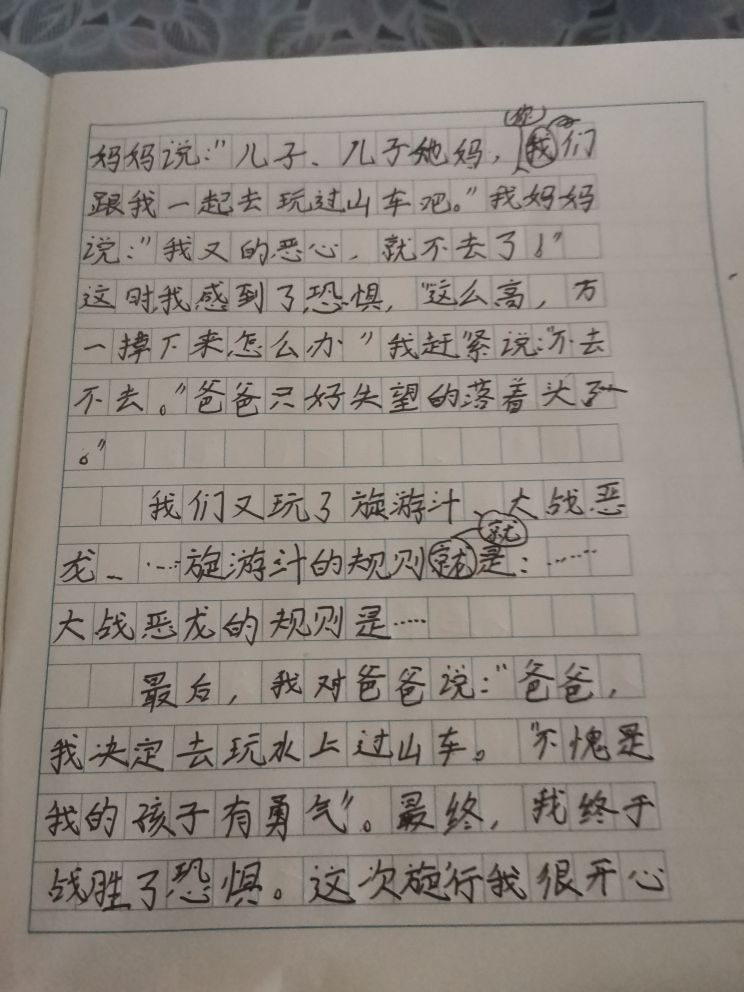 (你)
妈妈说:"儿子、儿子她妈,我们
跟我一起去玩过山车吧。"我妈妈
说:"我又的恶心,就不去了!"
这时我感到了恐惧,"这么高,万
一掉下来怎么办"我赶紧说:"不去
不去。"爸爸只好失望的落着头了
。"
我们又玩了旋游斗、大战恶
就
龙……旋游斗的规则就是:……
大战恶龙的规则是……
最后,我对爸爸说:"爸爸,
我决定去玩水上过山车。"不愧是
我的孩子有勇气"。最终,我终于
战胜了恐惧。这次旋行我很开心